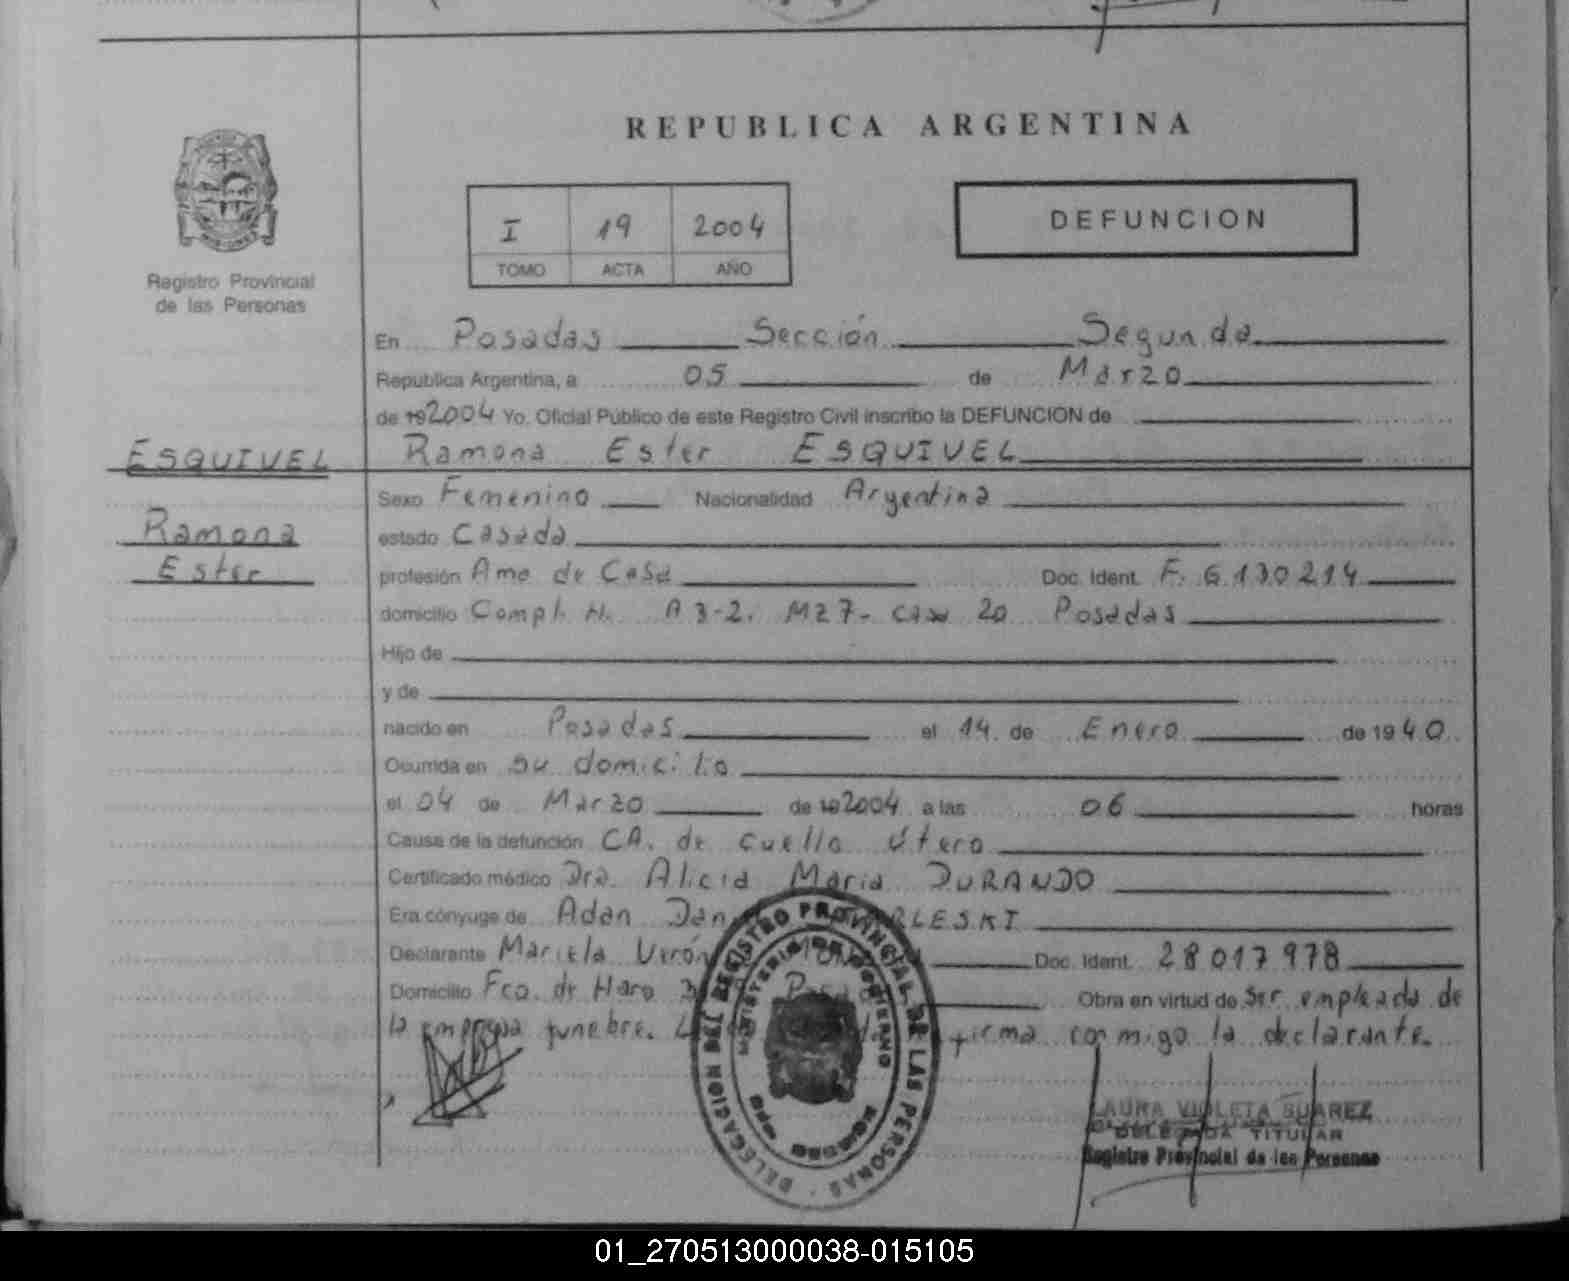 REPUBLICA ARGENTINA
I 19 2004
TOMO ACTA AÑO
DEFUNCION
Registro Provincial
de las Personas
En Posadas Sección Segunda
Republica Argentina, a 05 de Marzo
de 19 2004 Yo. Oficial Público de este Registro Civil inscribo la DEFUNCION de
ESQUIVEL
Ramona Ester ESQUIVEL
Sexo Femenino Nacionalidad Argentina
Ramona
estado Casada
Ester
profesión Ama de Casa Doc. Ident. F. 6.130.214
domicilio Compl. H. A 3-2. MZ 7- casa 20 Posadas
Hijo de
y de
nacido en Posadas el 14 de Enero de 1940
Ocurrida en su domicilio
el 04 de Marzo de 19 2004 a las 06 horas
Causa de la defunción CA. de cuello Útero
Certificado médico Dra. Alicia Maria DURANDO
Era cónyuge de Adan
Declarante Mariela Doc. Ident. 28 017 978
Domicilio Fco. de Haro Obra en virtud de Ser empleada de
la empresa funebre. firma conmigo la declarante.
DELEGACION DEL REGISTRO PROVINCIAL DE LAS PERSONAS
MINISTERIO DE GOBIERNO
LAURA VIOLETA SUAREZ
DELEGADA TITULAR
Registro Provincial de las Personas
01_270513000038-015105